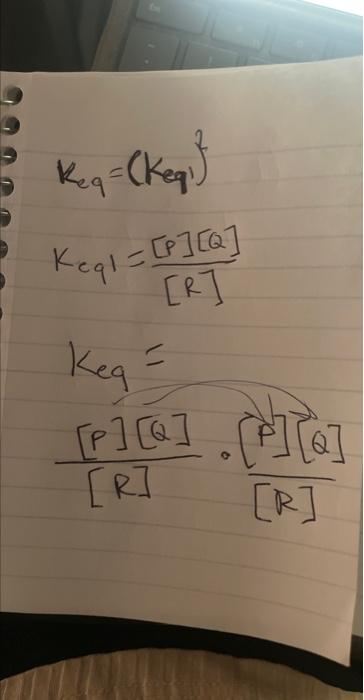 Keq = (Keq1)²
Keq1 = [P][Q] / [R]
Keq =
[P][Q] / [R] · [P][Q] / [R]